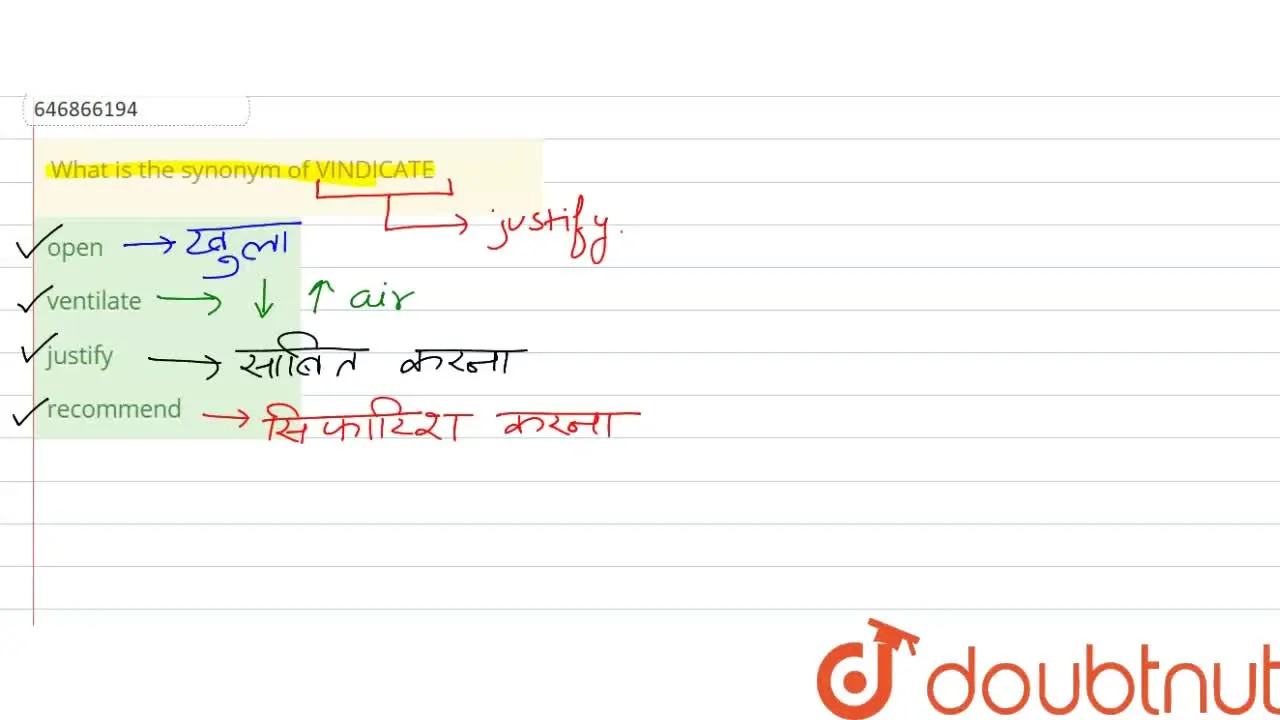 646866194
What is the synonym of VINDICATE
justify.
open → खुला
ventilate → ↓ ↑ air
justify → साबित करना
recommend → सिफारिश करना
doubtnut